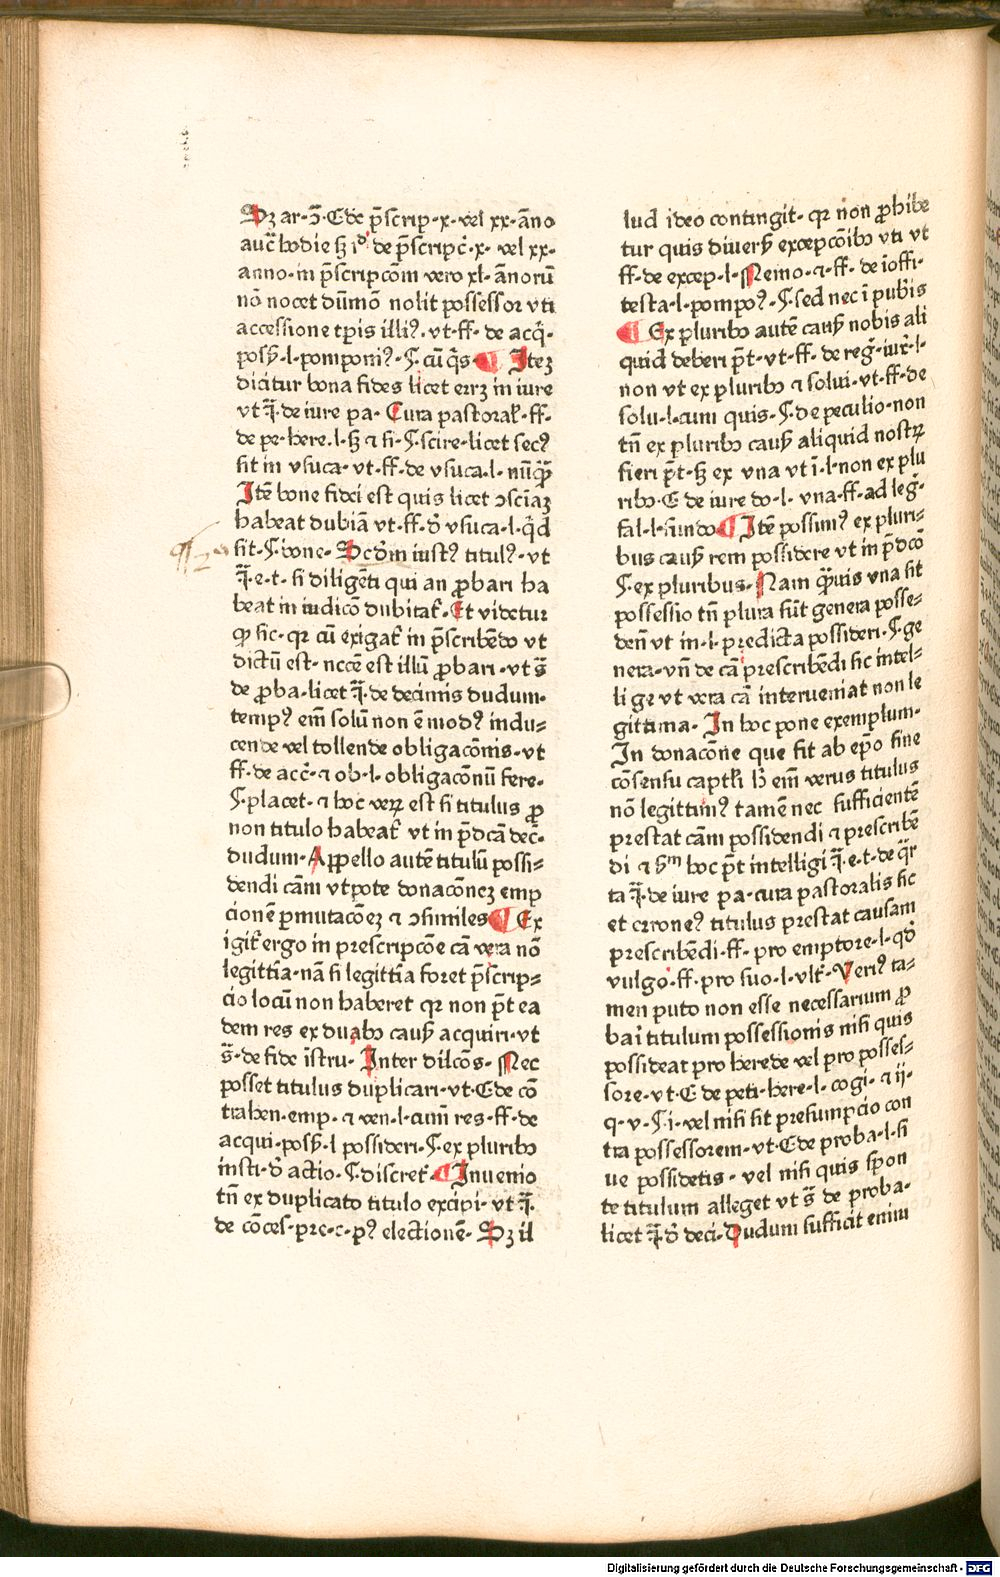 Sʒ ar· ↄ̄· C de p̄scrip·x·vel xx·āno
auc̄ hodie sʒ iᵈ de p̄scripc̄·x·vel xx·
anno·in p̄scripcōm vero xl·ānorū
nō nocet dūmō nolit possessor vti
accessione tp̄is illiꝰ·vt·ff·de acq̄·
poss̄·l·pomponiꝰ·§·cū q̄s· ¶ Iteʒ
dicitur bona fides licet errʒ in iure
vt ·de iure pa· Cura pastoral̄·ff·
de pe·here·l·sʒ ⁊ si·§·scire·licet secꝰ
sit in vsuca·vt·ff·de vsuca·l·nūꝙ̄
Itē bone fidei est quis licet ↄsciaʒ
habeat dubiā vt·ff·d̄ vsuca·l·q̄d
sit·§·bone·Scd̄m iustꝰ titulꝰ·vt
·e·t·si diligēti qui an ꝓbari ha
beat in iudicō dubitat̄·Et videtur
ꝙ sic·qr cū exigat̄ in p̄scribēdo vt
dictū est·nccē est illū ꝓbari·vt s̄
de ꝓba·licet ·de decimis dudum·
tempꝰ em̄ solū non ē modꝰ indu=
cende vel tollende obligacōnis·vt
ff·de acc̄·⁊ ob·l·obligacōnū fere·
§·placet·⁊ hoc verʒ est si titulus ꝓ
non titulo habeat̄ vt in p̄dcā dec̄·
dudum·Appello autē titulū possi=
dendi cām vtpote donacōneʒ emp
cionē ꝑmutacōeʒ ⁊ ↄsimiles ¶ Ex
igit̄ ergo in prescripcōe cā vera nō
legittīa·nā si legittīa foret p̄scrip=
cio locū non haberet qr non p̄t ea
dem res ex duabꝫ caus̄ acquiri·vt
s̄·de fide īstru·Inter dilcōs·Nec
posset titulus duplicari·vt·C de cō
trahen·emp·⁊ ven·l·cum res·ff·de
acqui·poss̄·l possideri·§·ex pluribꝫ
insti·d̄ actio·§·discret̄· ¶ Inuenio
tn̄ ex duplicato titulo excipi·vt·
de cōces·pre·c·pꝰ electionē·Sʒ il
lud ideo contingit·qr non ꝓhibe
tur quis diuers̄ excepcōibꝫ vti vt
ff·de excep·l·Nemo·⁊ ff·de ioffi·
testa·l·pompoꝰ·§·sed nec ī pub̄is
¶ Ex pluribꝫ autē caus̄ nobis ali
quid deberi p̄t·vt·ff·de reḡ·iur̄·l·
non vt ex pluribꝫ ⁊ solui·vt·ff·de
solu·l·cum quis·§·de peculio·non
tn̄ ex pluribꝫ caus̄ aliquid nostrʒ
fieri p̄t·sʒ ex vna vt ī·l·non ex plu
ribꝫ·C de iure do·l·vna·ff·ad leḡ·
fal·l·sūndo ¶ Itē possimꝰ ex pluri=
bus caus̄ rem possidere vt in p̄dcō
§·ex pluribus·Nam ꝙ̄uis vna sit
possessio tn̄ plura sūt genera posse=
den̄ vt in·l·predicta possideri·§·ge
nera·vn̄ de cā prescribēdi sic intel=
lige vt vera cā interueniat non le
gittima·In hoc pone exemplum·
In donacōne que fit ab ep̄o sine
cōsensu captl̄i h̄ em̄ verus titulus
nō legittimꝰ tamē nec sufficientē
prestat cām possidendi ⁊ prescribē
di ⁊ s̄ᵐ hoc p̄t intelligi ·e·t·de q̄r
ta ·de iure pa·cura pastoralis sic
et erroneꝰ titulus prestat causam
prescribēdi·ff·pro emptore·l·qd̄
vulgo·ff·pro suo·l·vlt̄·Veriꝰ ta=
men puto non esse necessarium ꝓ
bari titulum possessionis nisi quis
possideat pro herede vel pro posses=
sore·vt·C de peti·here·l·cogi·⁊ ij·
q·v·§·i·vel nisi sit presumpcio con
tra possessorem·vt·C de proba·l·si
ue possidetis·vel nisi quis spon
te titulum alleget vt s̄ de proba·
licet  d̄ deci·Dudum sufficit enim
Digitalisierung gefördert durch die Deutsche Forschungsgemeinschaft - DFG